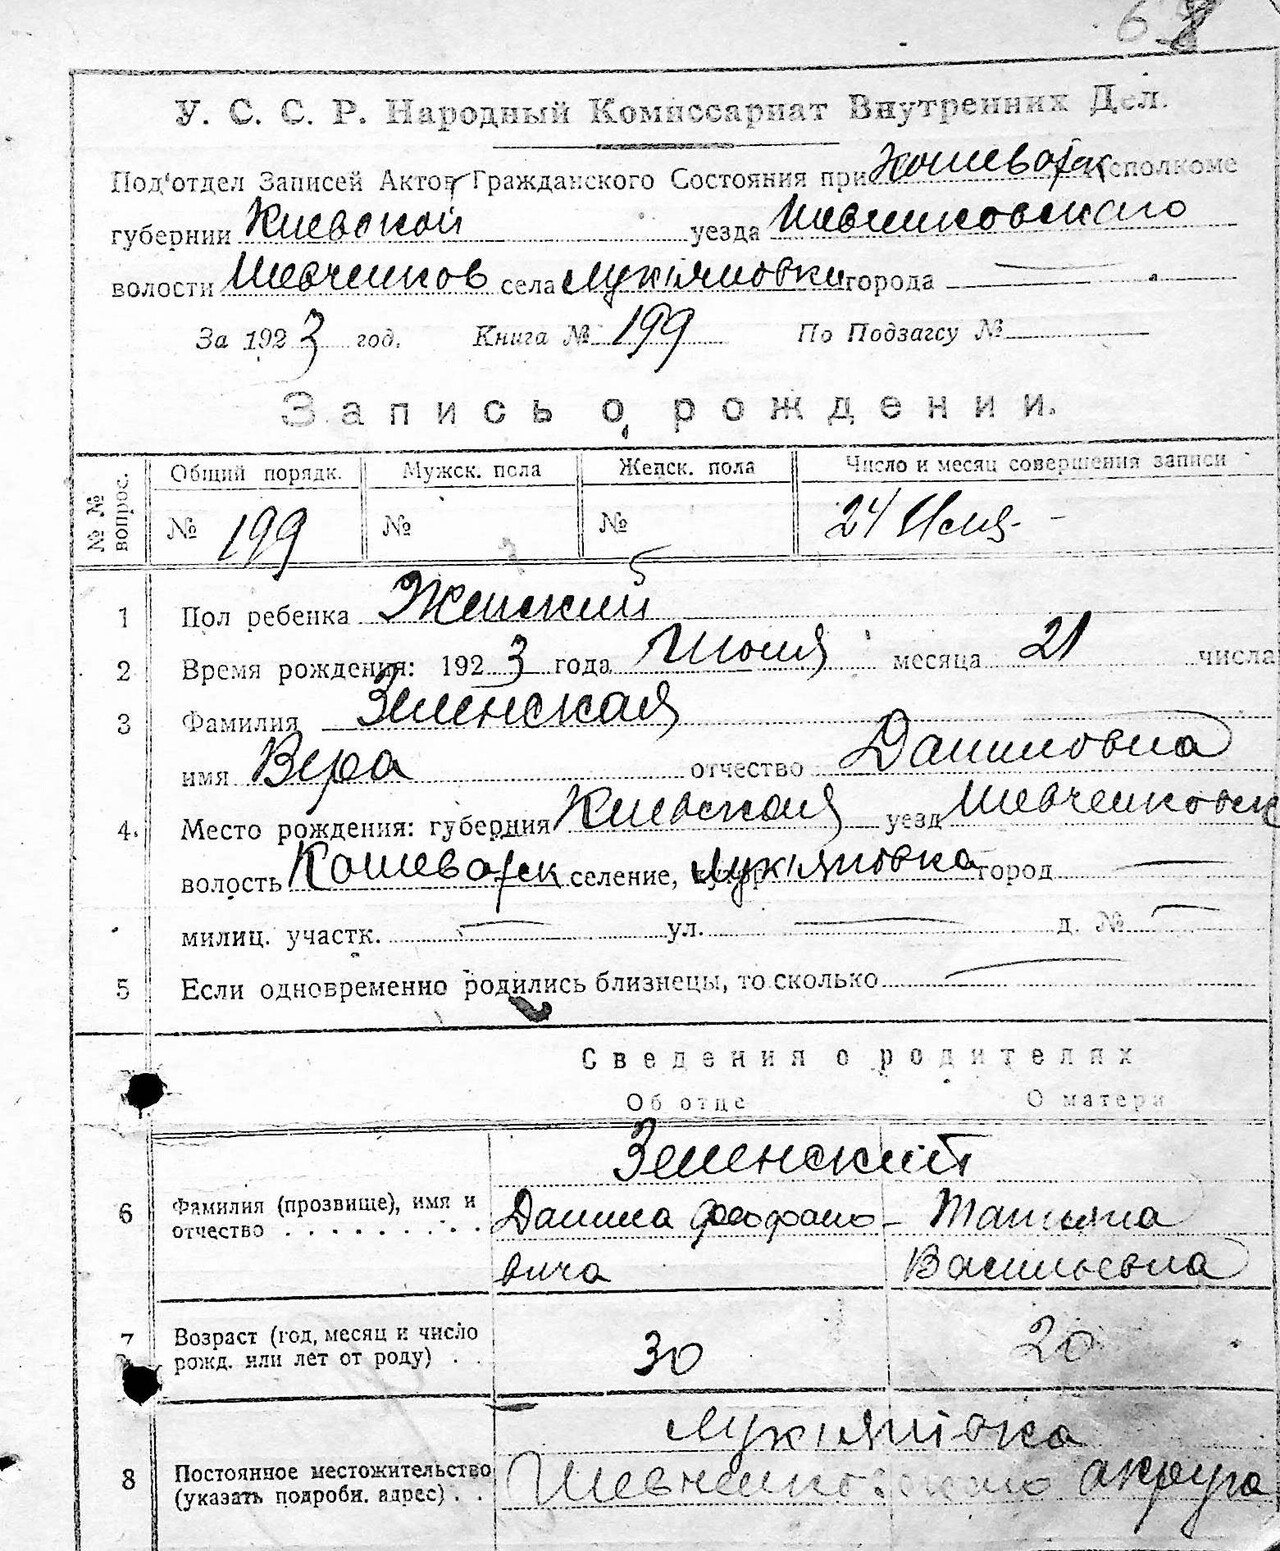 68
У. С. С. Р. Народный Комиссариат Внутренних Дел.
Под'отдел Записей Актов Гражданского Состояния при Кошеватск исполкоме
губернии Киевской уезда Шевченковского
волости Шевченков села Лукіяновки города —
За 1923 год. Книга № 199 По Подзагсу №
Запись о рождении.
№ № вопрос.
Общий порядк. Мужск. пола Женск. пола Число и месяц совершения записи
№ 199 № № 24 Июля
1 Пол ребенка Женский
2 Время рождения: 1923 года Июля месяца 21 числа
3 Фамилия Зеленская
имя Вера отчество Даниловна
4. Место рождения: губерния Киевская уезд Шевченковск
волость Кошеватск селение, хутор Лукіяновка город —
милиц. участк. — ул. — д. № —
5 Если одновременно родились близнецы, то сколько —
Сведения о родителях
Об отце О матери
Зеленский
6 Фамилия (прозвище), имя и отчество Данила Феофано- Татьяна
вича Васильевна
7 Возраст (год, месяц и число рожд. или лет от роду) 30 20
Лукіяновка
8 Постоянное местожительство (указать подробн. адрес) Шевченковского округа